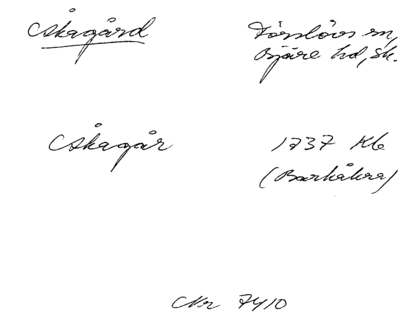 Åkagård
Förslövs sn,
Bjäre hd, Sk.
Åkagår
1737 Kb
(Barkåkra)
Nr 7410